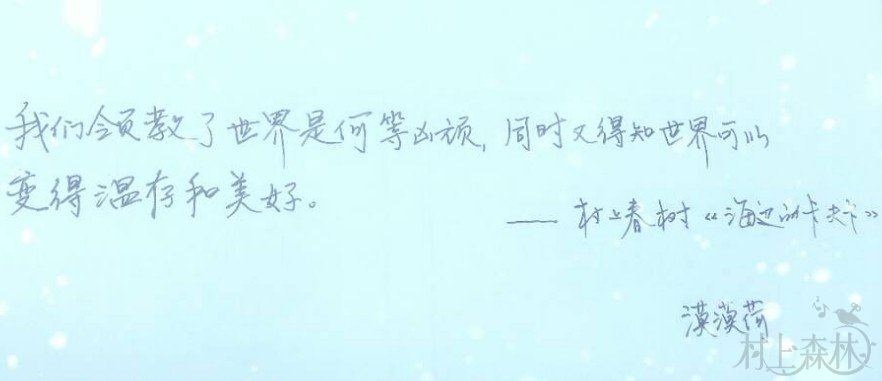 我们领教了世界是何等凶顽，同时又得知世界可以
变得温存和美好。
——村上春树《海边的卡夫卡》
漠漠荷
村上森林